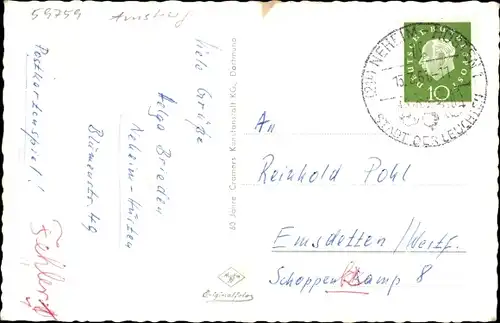 59759 Arnsberg
Viele Grüße
Helga Brieden
Neheim-Hüsten
Blumenstr.
Postkartenspiel!
Fehler
65 Jahre Cramers Kunstanstalt KG., Dortmund
Originalfoto
DEUTSCHE BUNDESPOST
10
(21b) NEHEIM-HÜSTEN 1
STADT DER LEUCHTEN
An
Reinhold Pohl
Emsdetten / Westf.
Schoppenkamp 8